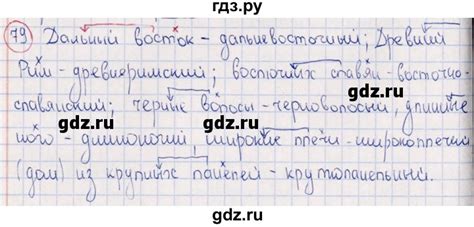 гдз.ру
79 Дальный восток - дальневосточный; Древний
Рим - древнеримский; восточных славян - восточно-
славянский; черные волосы - черноволосый, длинные
ноги - длинноногий, широкие плечи - широкоплечий
(дом) из крупных панелей - крупнопанельный.
gdz.ru
gdz.ru
gdz.ru
gdz.ru
gdz.ru
gdz.ru